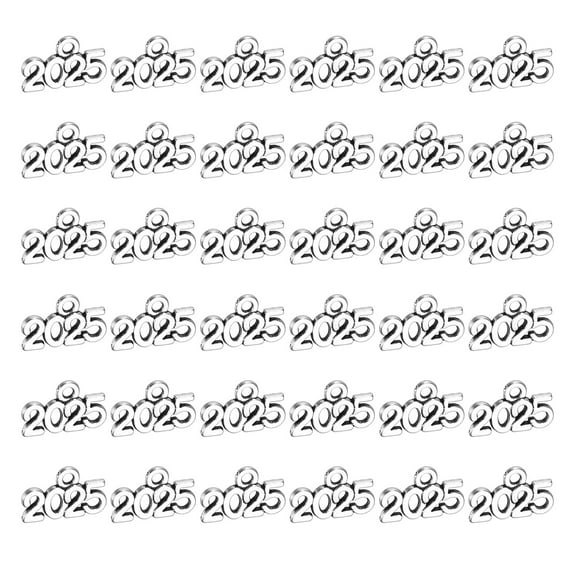 2025 2025 2025 2025 2025 2025
2025 2025 2025 2025 2025 2025
2025 2025 2025 2025 2025 2025
2025 2025 2025 2025 2025 2025
2025 2025 2025 2025 2025 2025
2025 2025 2025 2025 2025 2025